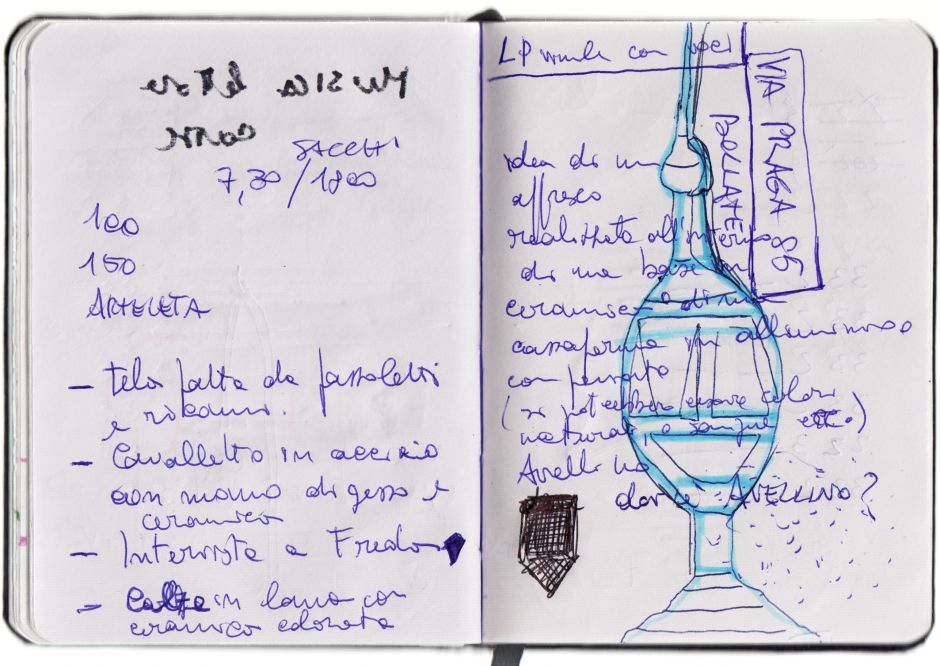 MUSICA
SACCHI
7,30 / 1800
100
150
- tela fatta da fazzoletti
e ricami.
- Cavalletto in acciaio
con mano di gesso e
ceramica
- Intervista a Fredo
- in lana con
ceramica colorata
LP vinile con voci
VIA PRAGA 85
BOLLATE
idea di un
affresco
realizzato all'interno
di una base in
ceramica o di una
cassaforma in alluminio
con
(si potrebbe usare colori
naturali, o sangue etc.)
Avellino
dov'è AVELLINO?